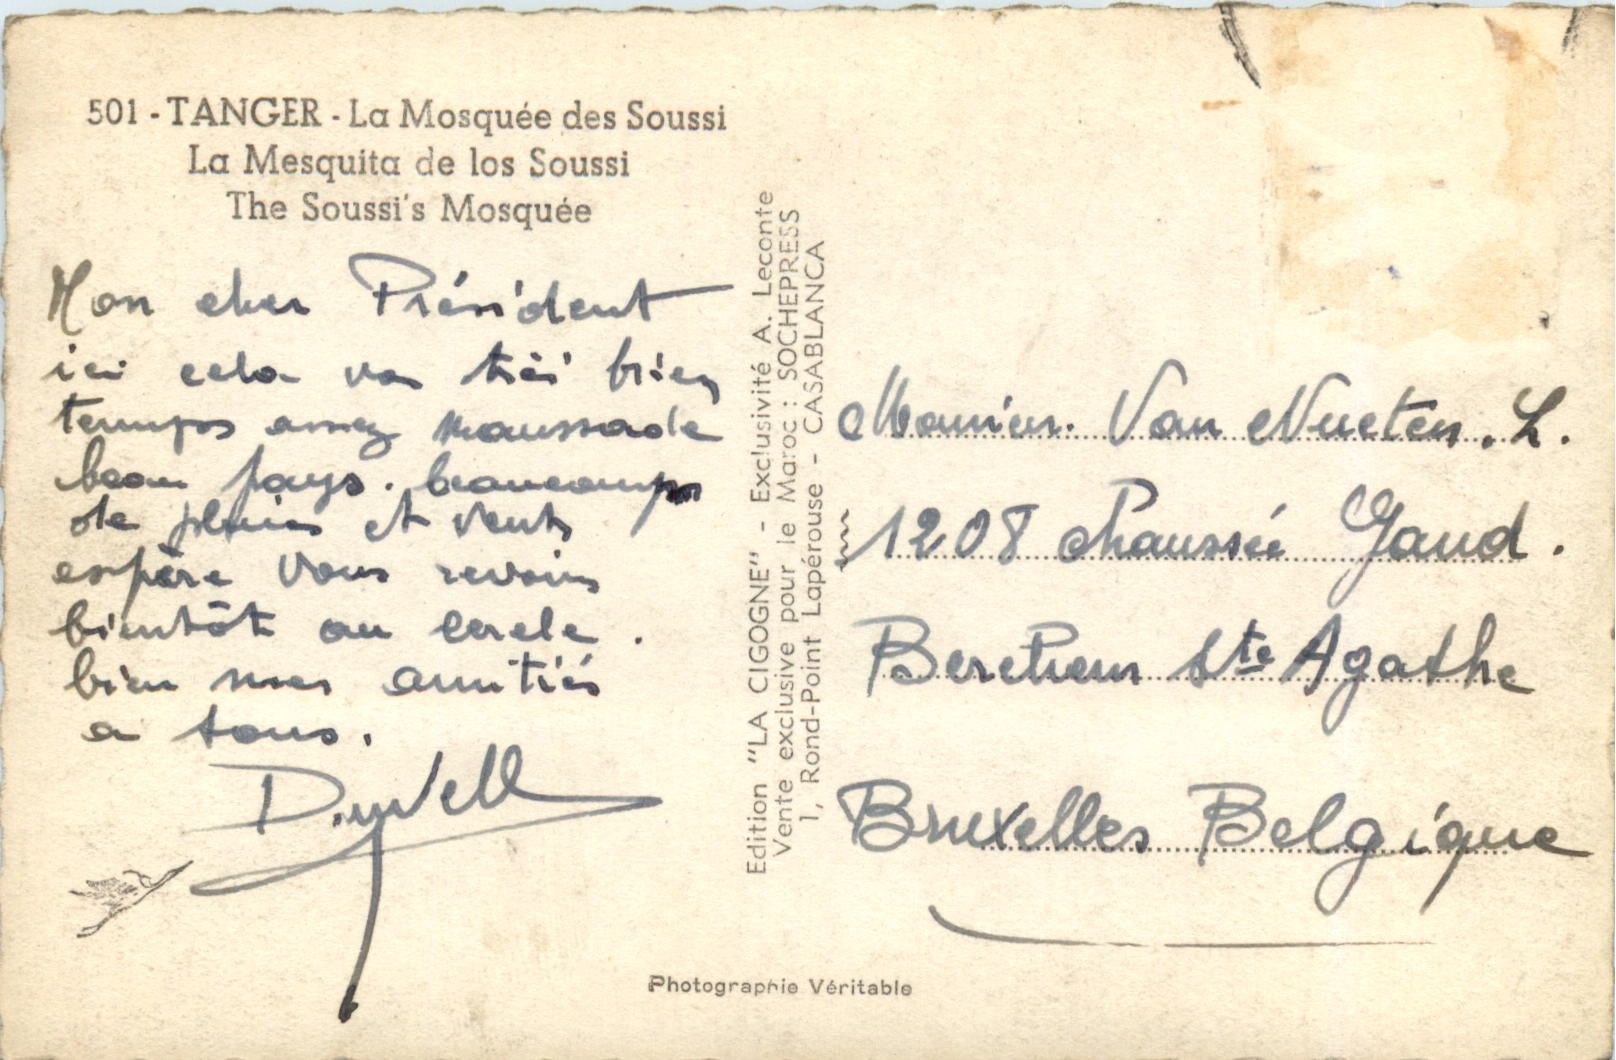 501 - TANGER - La Mosquée des Soussi
La Mesquita de los Soussi
The Soussi's Mosquée
Mon cher Président
ici cela va très bien
temps assez maussade
beau pays. beaucoup
de pluies et vents
espère vous revoir
bientôt au cercle.
bien mes amitiés
a tous.
Edition "LA CIGOGNE" - Exclusivité A. Leconte
Vente exclusive pour le Maroc : SOCHEPRESS
1, Rond-Point Lapérouse - CASABLANCA
Monsieur. Van Nueten. L.
1208 chaussée Gand.
Berchem Ste Agathe
Bruxelles Belgique
Photographie Véritable